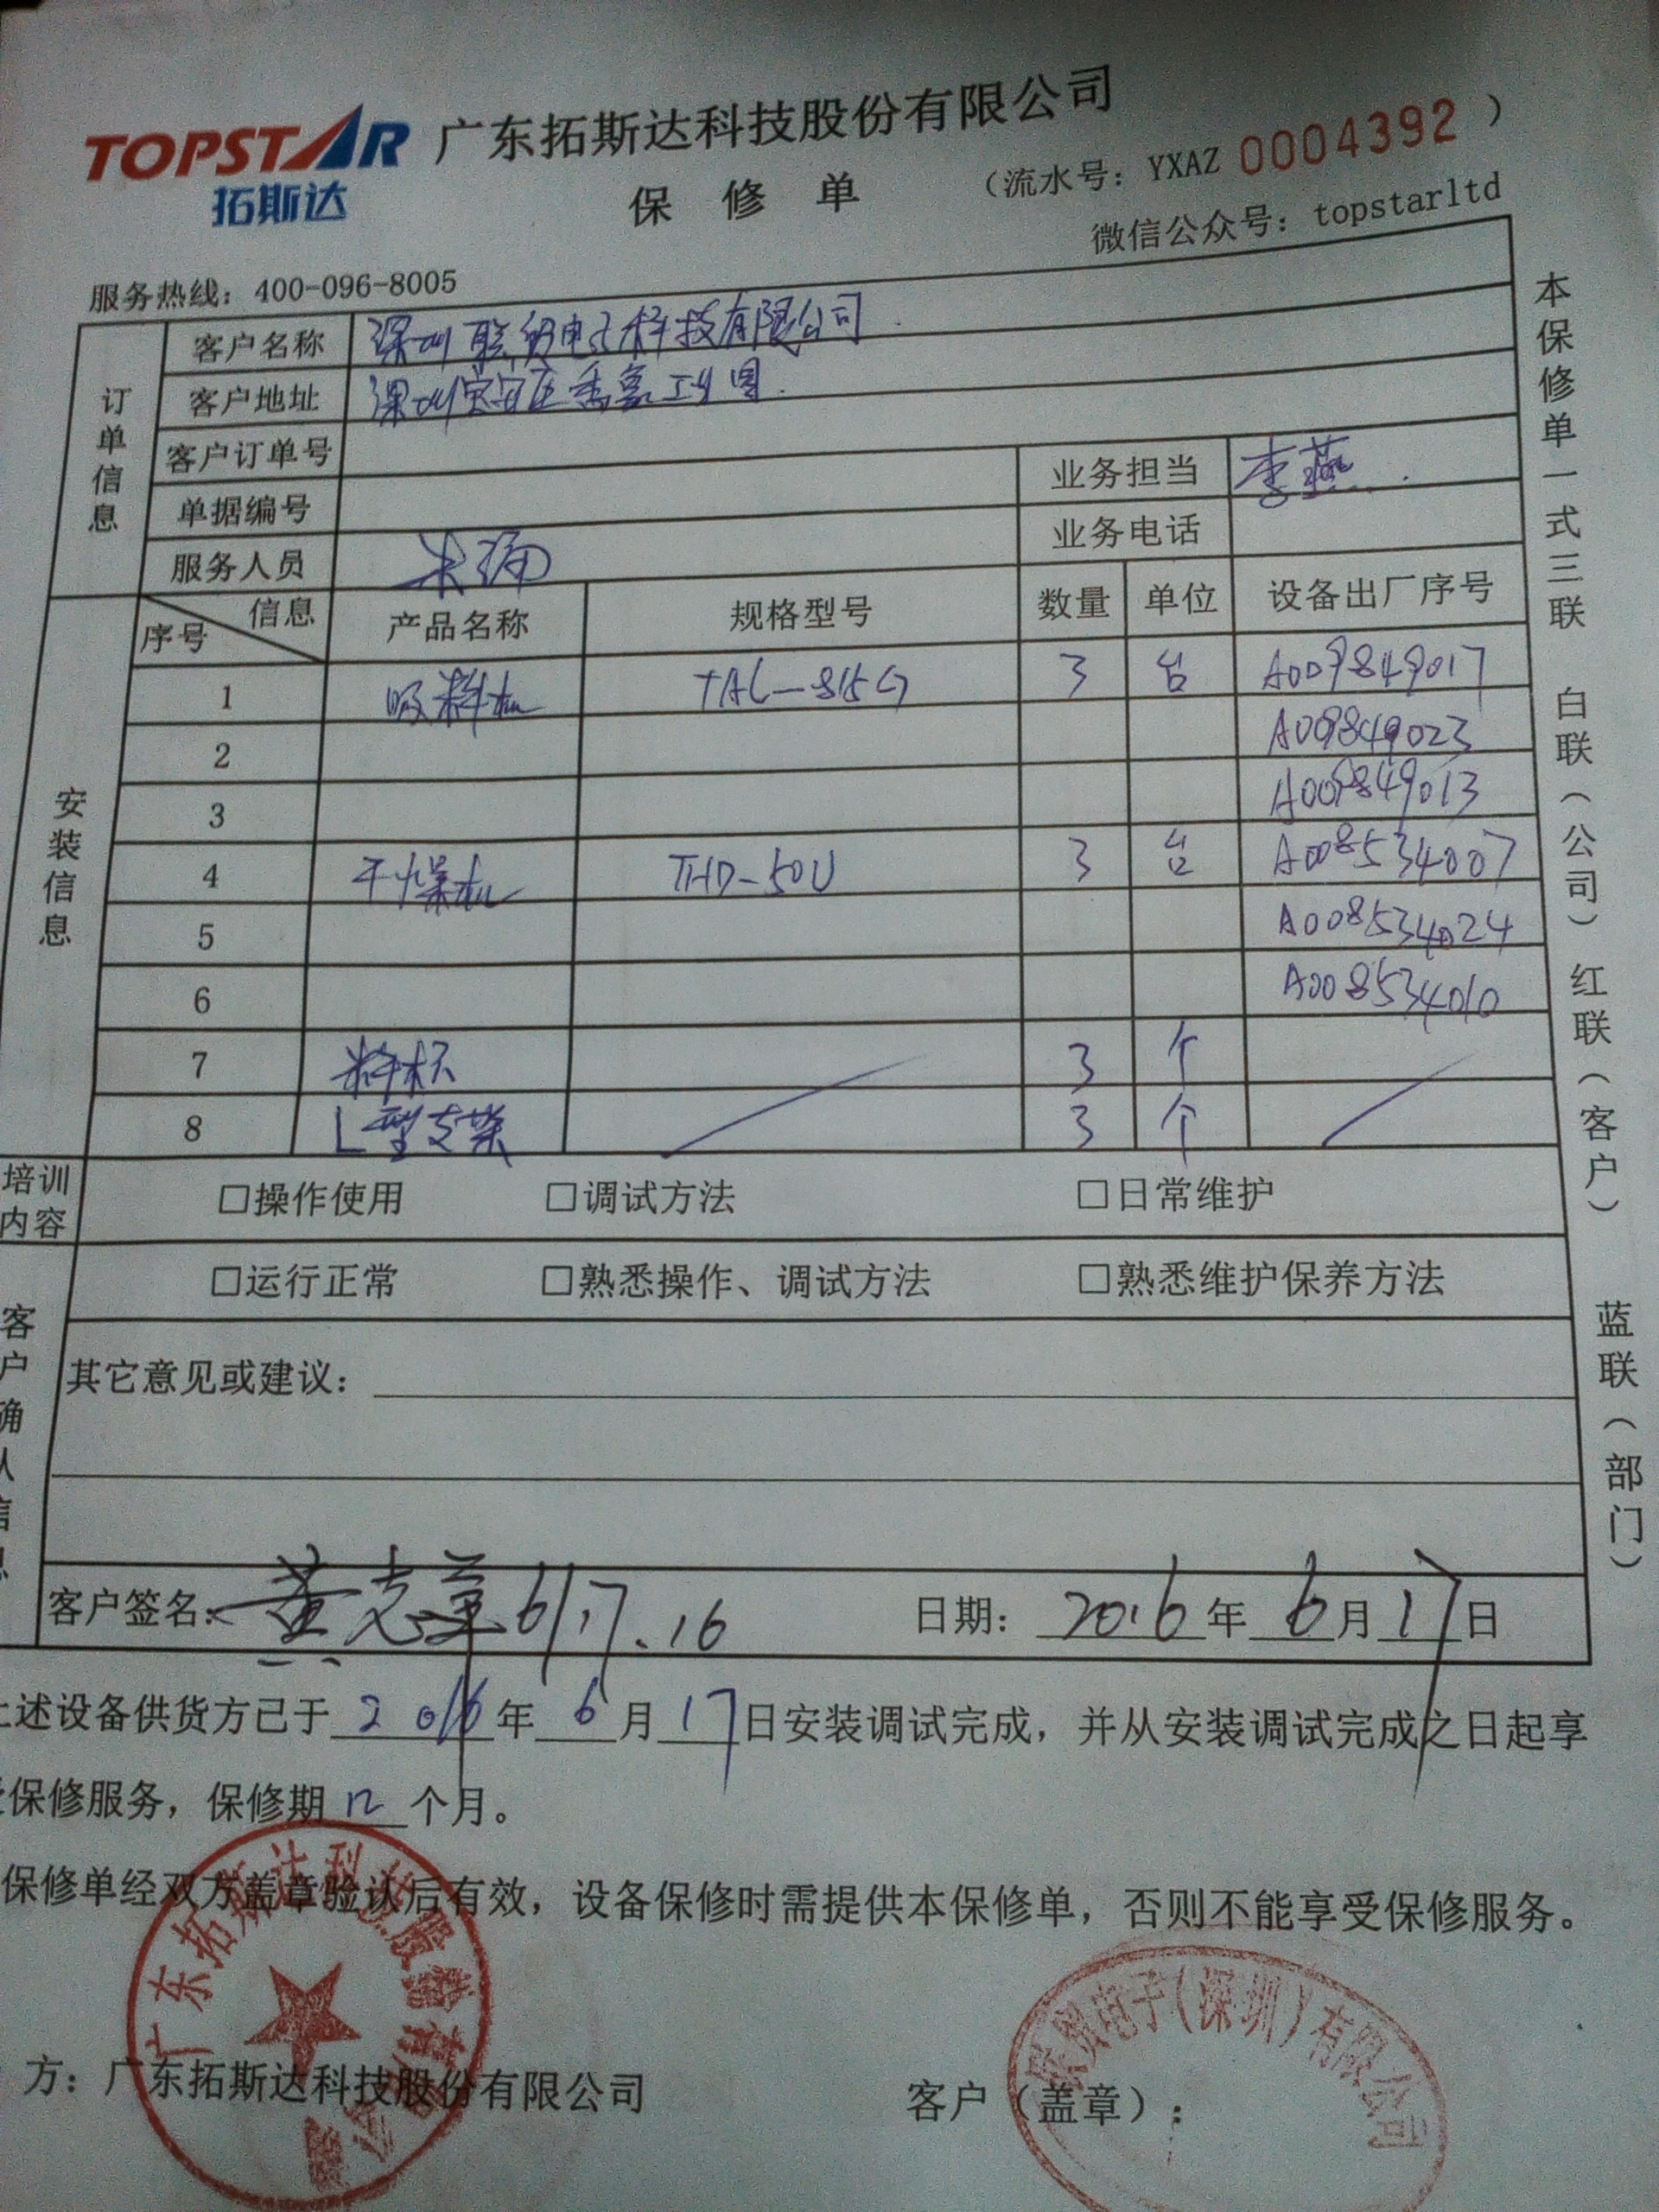 TOPSTAR 广东拓斯达科技股份有限公司
拓斯达
保 修 单 (流水号: YXAZ 0004392 )
微信公众号: topstarltd
服务热线: 400-096-8005
订单信息
客户名称 深圳联 电子科技有限公司
客户地址 深圳宝安区 工业园
客户订单号
单据编号 业务担当 李燕
服务人员 业务电话
安装信息
序号 信息 产品名称 规格型号 数量 单位 设备出厂序号
1 吸料机 TAL-815G 3 台 A009849017
2 A009849023
3 A009849013
4 干燥机 THD-50U 3 台 A008534007
5 A008534024
6 A008534010
7 3 个
8 L型支架 3 个
培训内容 □操作使用 □调试方法 □日常维护
客户确认信息
□运行正常 □熟悉操作、调试方法 □熟悉维护保养方法
其它意见或建议:
客户签名: 黄志 6/17.16 日期: 2016年6月17日
上述设备供货方已于2016年6月17日安装调试完成, 并从安装调试完成之日起享
受保修服务, 保修期12个月。
保修单经双方盖章验认后有效, 设备保修时需提供本保修单, 否则不能享受保修服务。
方: 广东拓斯达科技股份有限公司 客户(盖章):
广东拓斯达科技股份有限公司
电子(深圳)有限公司
本保修单一式三联 白联(公司) 红联(客户) 蓝联(部门)